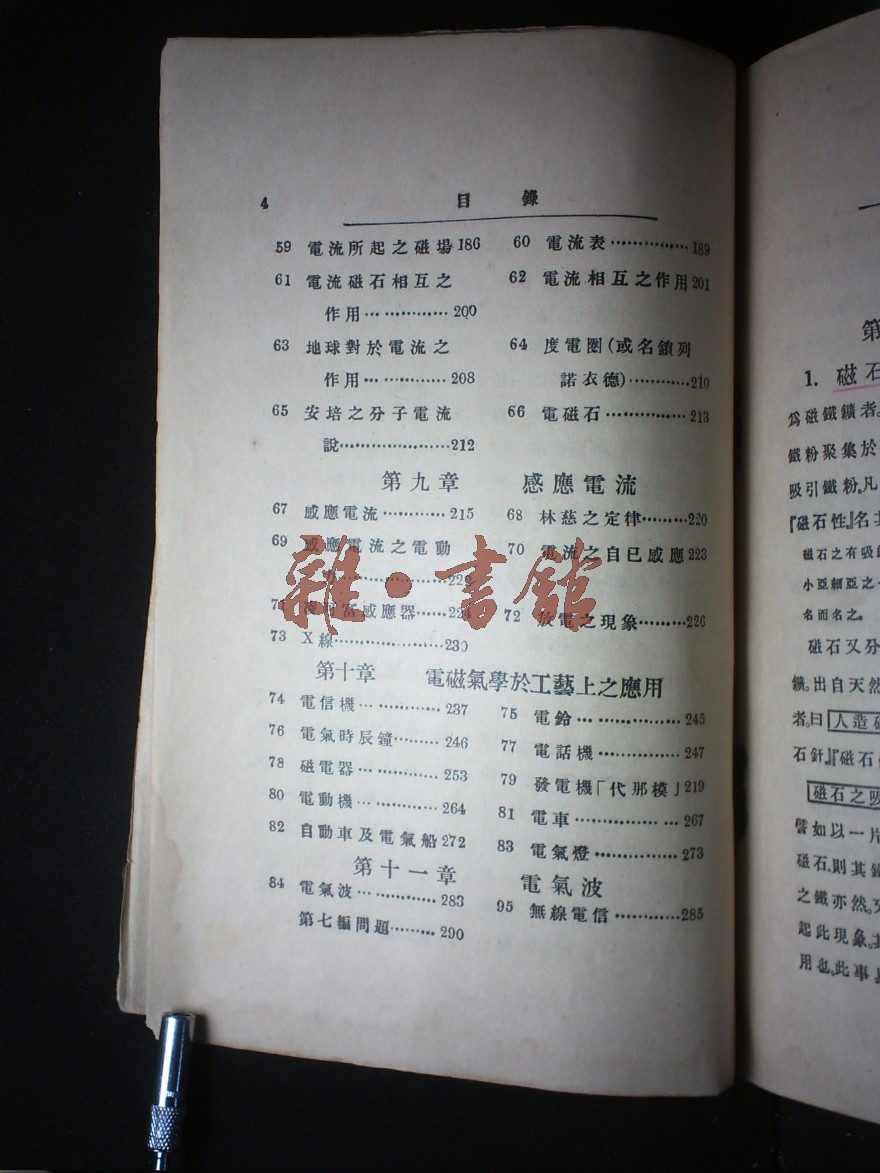 4 目錄
59 電流所起之磁場186 60 電流表……………189
61 電流磁石相互之 62 電流相互之作用201
作用……………200
63 地球對於電流之 64 度電圈(或名鎖列
作用……………208 諾衣德)…………210
65 安培之分子電流 66 電磁石……………213
說…………………212
第九章 感應電流
67 感應電流…………215 68 林慈之定律………220
69 感應電流之電動 70 電流之自已感應223
力
感應器……224 72 放電之現象………226
73 X線…………………230
第十章 電磁氣學於工藝上之應用
74 電信機……………237 75 電鈴………………245
76 電氣時辰鐘………246 77 電話機……………247
78 磁電器……………253 79 發電機「代那模」219
80 電動機……………264 81 電車………………267
82 自動車及電氣船272 83 電氣燈……………273
第十一章 電氣波
84 電氣波……………283 95 無線電信…………285
第七編問題………290
雜·書館
第
1. 磁石
爲磁鐵鑛者。
鐵粉聚集於
吸引鐵粉。凡
『磁石性』名其
磁石之有吸
小亞細亞之
名而名之。
磁石又分
鑛。出自天然
者。曰人造
石針』『磁石
磁石之吸
譬如以一片
磁石。則其鐵
之鐵亦然。
起此現象。
用也。此事